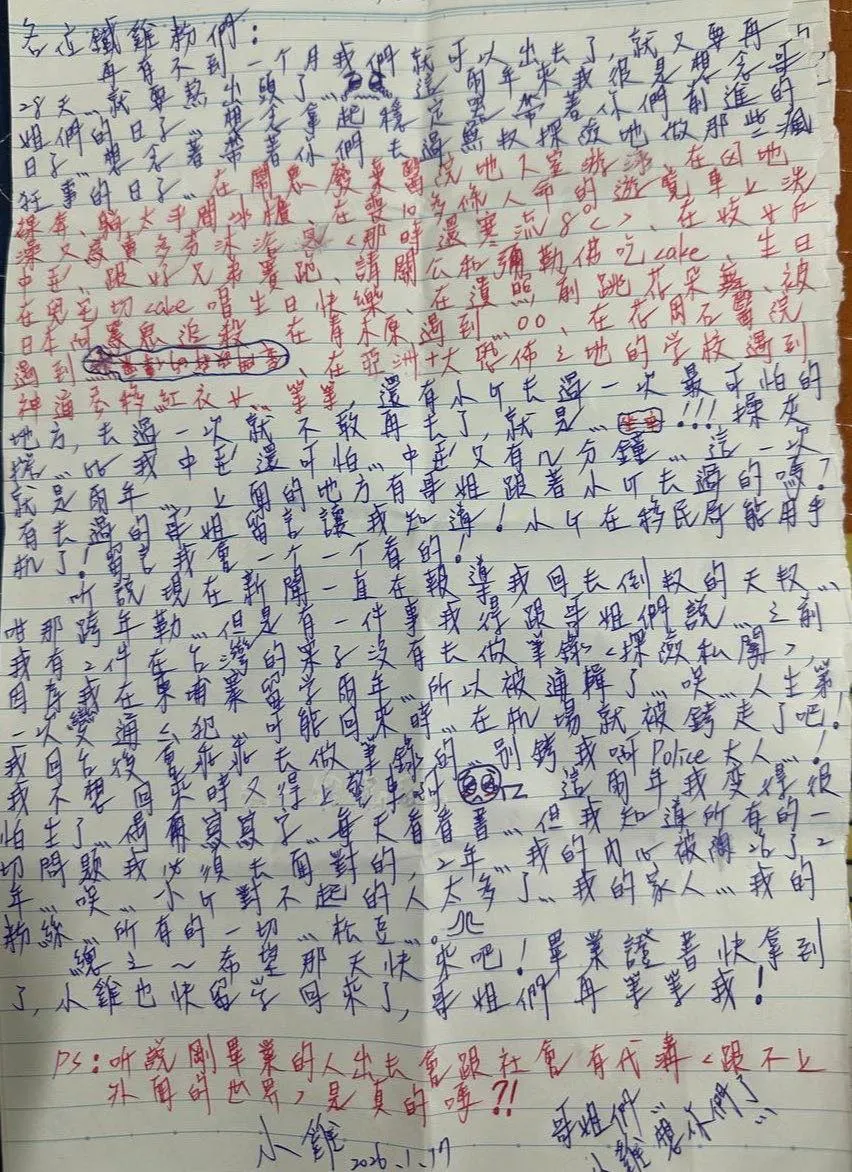 各位鐵雞粉們：
再有不到一個月我們就可以出去了，就又要再
28天…就要熬出頭了…這兩年來我很是想念哥
姐們的日子…想念拿起穩定器帶著你們前進的
日子…想念著帶著你們去過無數探險地做那些瘋
狂事的日子…在鬧鬼廢棄醫院地下室游泳、在凶地
裸奔、躺太平間冰櫃、在喪10多條人命的遊覽車上洗
澡又麥多芬沐浴<那時還寒流8°C>、在妓女戶
中邪、跟好兄弟賽跑、請關公和彌勒佛吃cake、生日
在兇宅切cake唱生日快樂、在遺照前跳花朵舞、被
日本阿飄追殺、在青木原遇到…○○、在花岡石醫院
遇到、在亞洲十大恐怖之地的学校遇到
神道麥移紅衣女…等等，還有小ㄐ去過一次最可怕的
地方，去過一次就不敢再去了，就是…!!!操灰
操…比我中邪還可怕…中邪又有几分鐘…這一次
就是兩年…，上面的地方有哥姐跟著小ㄐ去過的嗎？
有去過的哥姐留言讓我知道！小ㄐ在移民局能用手
机了！留言我會一个一个看的！
听說現在新聞一直在報導我回去倒数的天数…
咁那跨年勒…但是有一件事我得跟哥姐們說…之前
我有2件在台灣的案子沒有去做筆錄<探險私闖>，
因為我在柬埔寨留学兩年…所以被通緝了…唉…人生第
一次變通ㄑ犯…可能回來時…在机場就被銬走了吧！
我回台後會乖乖去做筆錄的…別銬我啊Police大人…！
我不想回來時又得上警車啊 這兩年我变得很
怕生了…偶爾寫寫字…每天看看書…但我知道所有的一
切問題我必須去面對的，2年…我的内心被關了2
年…唉…小ㄐ對不起的人太多了…我的家人…我的
粉絲…所有的一切…松豆…。
總之～希望那天快來吧！畢業證書快拿到
了，小雞也快留学回來了，哥姐們再等等我！
PS：听說剛畢業的人出去會跟社會有代溝<跟不上
外面的世界>是真的嗎?!
小雞 2026.1.17
哥姐們…
小雞想你們了…